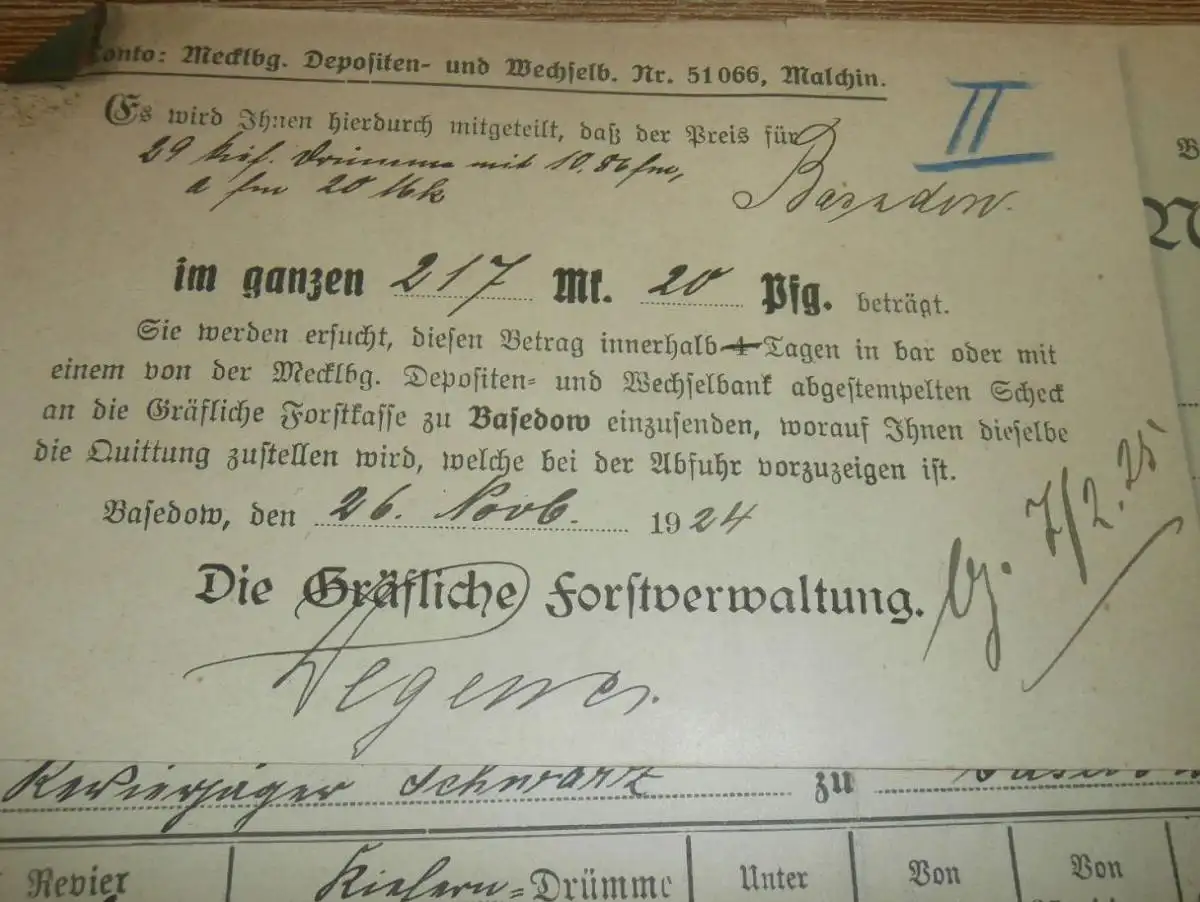 Konto: Mecklbg. Depositen- und Wechselb. Nr. 51066, Malchin.
II
Es wird Ihnen hierdurch mitgeteilt, daß der Preis für
29 kief. Drümme mit 10.86 fm,
a fm 20 Mk
im ganzen 217 Mk. 20 Pfg. beträgt.
Sie werden ersucht, diesen Betrag innerhalb 4 Tagen in bar oder mit
einem von der Mecklbg. Depositen- und Wechselbank abgestempelten Scheck
an die Gräfliche Forstkasse zu Basedow einzusenden, worauf Ihnen dieselbe
die Quittung zustellen wird, welche bei der Abfuhr vorzuzeigen ist.
Basedow, den 26. Novb. 1924
7/2.25
Die Gräfliche Forstverwaltung.
Revierjäger Schwartz zu
Revier Kiefern-Drümme Unter Von Von